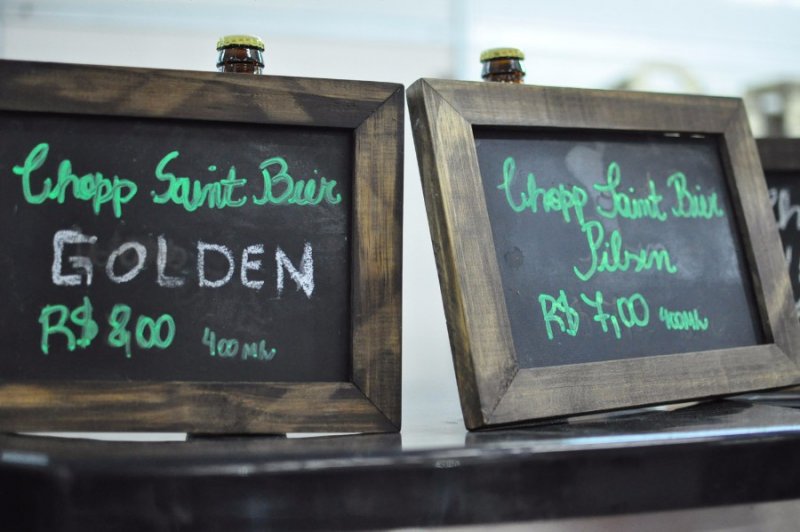 Chopp Saint Bier
GOLDEN
R$ 8,00 400ml
Chopp Saint Bier
Pilsen
R$ 7,00 400ml